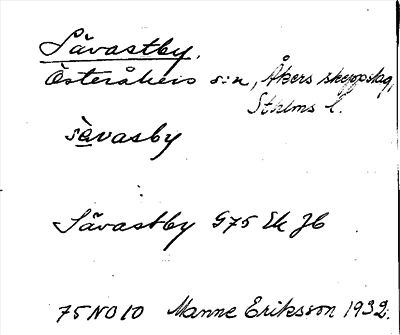 Sävastby.
Österåkers s:n, Åkers skeppslag,
Sthlms l.
sävasby
Sävastby G75 Ek Jb
75NO10 Manne Eriksson 1932.